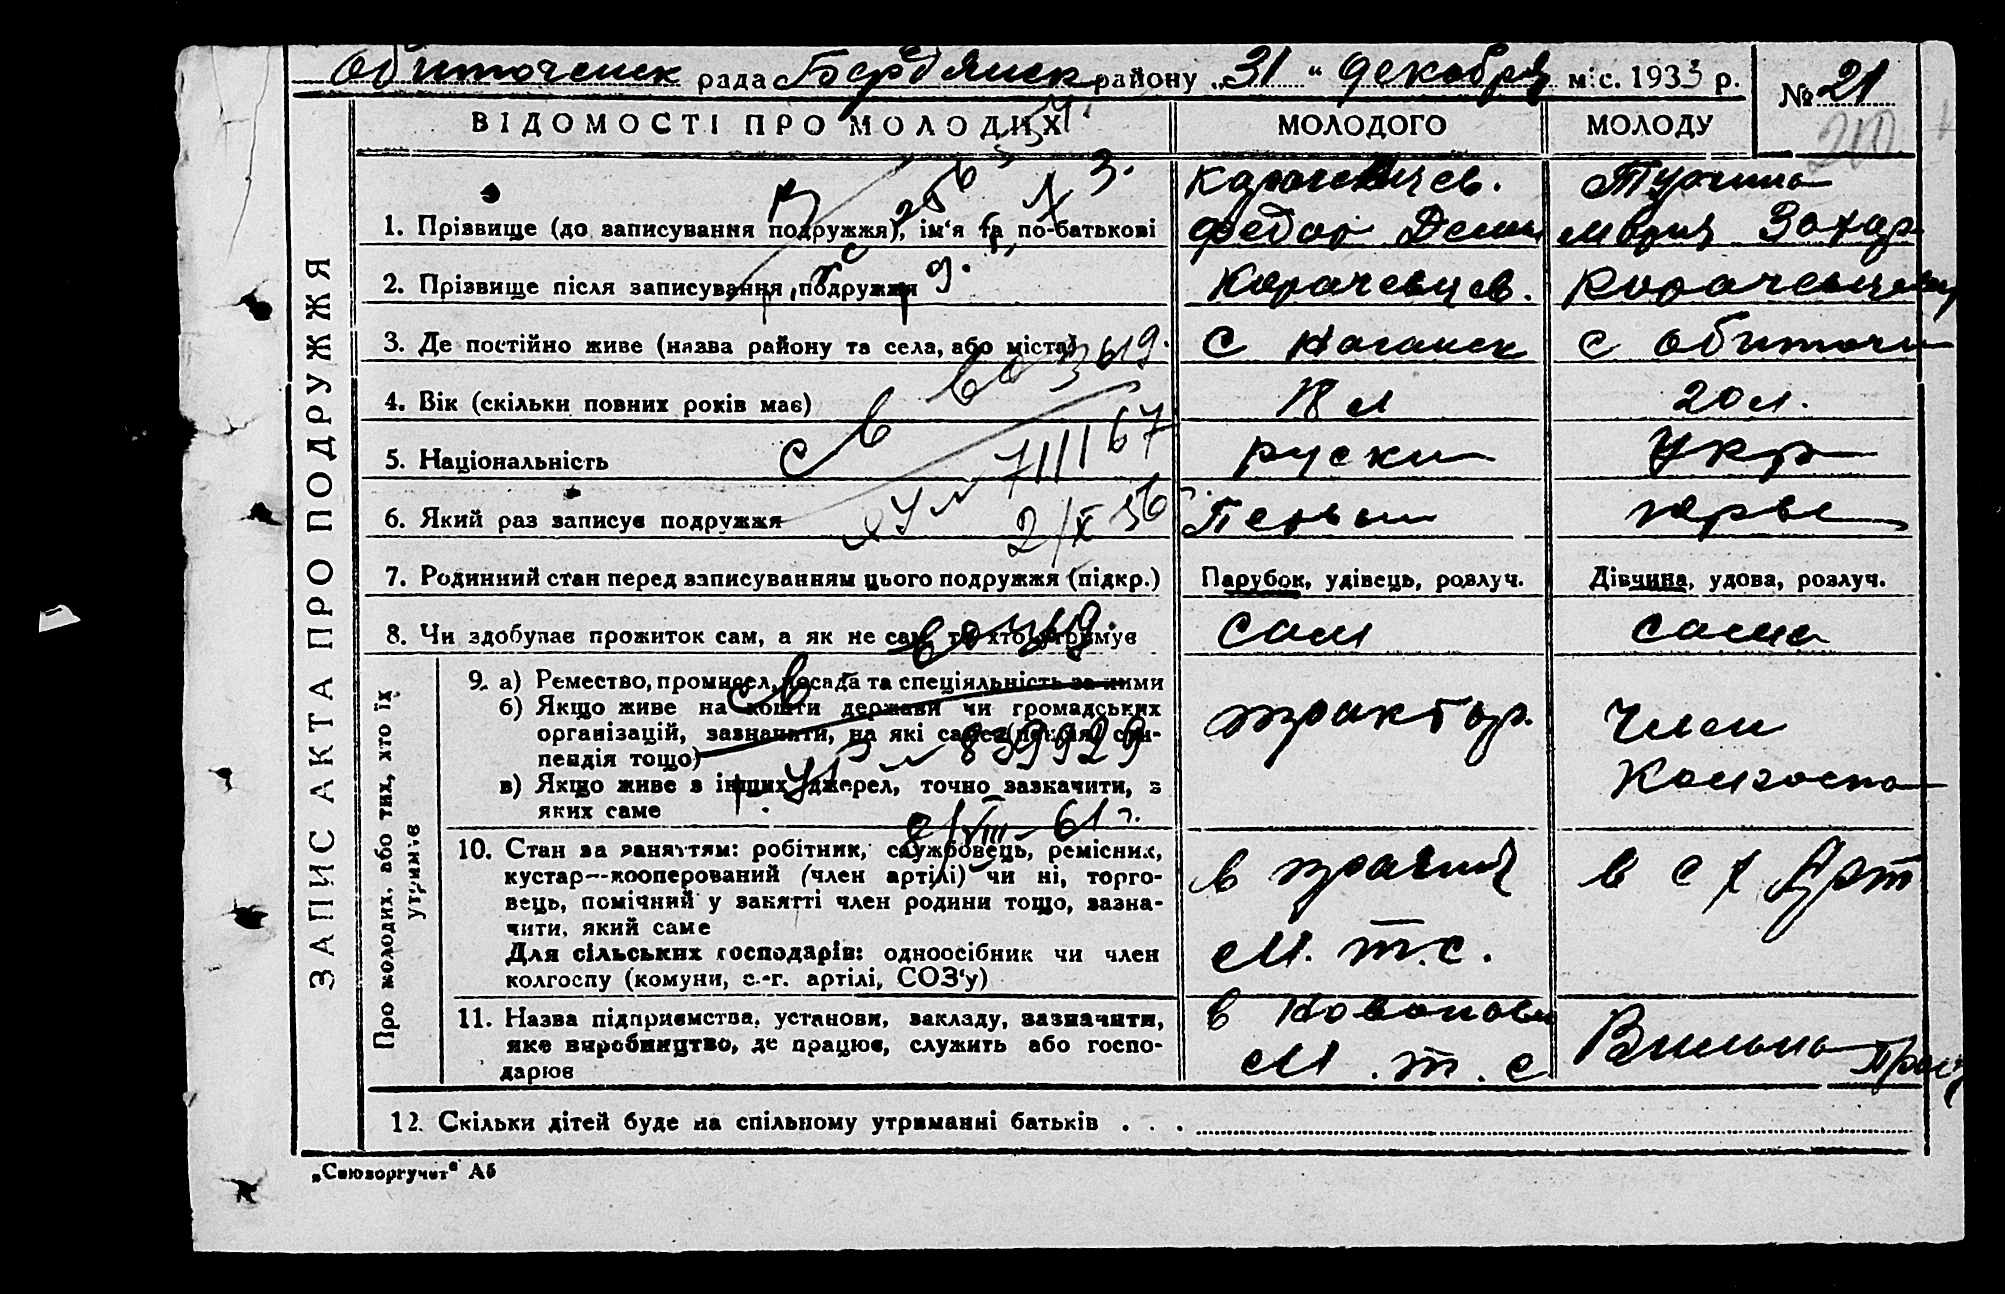 Обиточенск рада Бердянск району „31“ декабря міс. 1933 р.
№ 21
210
ВІДОМОСТІ ПРО МОЛОДИХ
МОЛОДОГО
МОЛОДУ
ЗАПИС АКТА ПРО ПОДРУЖЖЯ
1. Прізвище (до записування подружжя), ім'я та по-батькові
Федор Деми
Мария Захар
2. Прізвище після записування подружжя
Карачевцев.
Карачевцева
3. Де постійно живе (назва району та села, або міста)
с Ногайск
с Обиточн
4. Вік (скільки повних років має)
18 л
20 л.
5. Національність
руски
Укр
6. Який раз записує подружжя
Первы
первы
7. Родинний стан перед записуванням цього подружжя (підкр.)
Парубок, удівець, розлуч.
Дівчина, удова, розлуч.
8. Чи здобуває прожиток сам, а як не сам, то хто утримує
Сам
сама
Про молодих, або тих, хто їх утримує
9. а) Ремество, промисел, посада та спеціяльність за ними
б) Якщо живе на кошти держави чи громадських
організацій, зазначити, на які саме (пенсія, сти-
пендія тощо)
в) Якщо живе з інших джерел, точно зазначити, з
яких саме
трактор.
Член
Колгоспа
10. Стан за заняттям: робітник, службовець, ремісник,
кустар—кооперований (член артілі) чи ні, торго-
вець, помічний у занятті член родини тощо, зазна-
чити, який саме
Для сільських господарів: одноосібник чи член
колгоспу (комуни, с.-г. артілі, СОЗ'у)
в
М.Т.С.
в с х Арт
11. Назва підприємства, установи, закладу, зазначити,
яке виробництво, де працює, служить або госпо-
дарює
в
М.Т.С
Вильна
Прац
12. Скільки дітей буде на спільному утриманні батьків . . .
„Союзоргучет“ А5
ВО 3619.
СВ
7/III 67
2/X 56
839929
8/VIII-61 г.